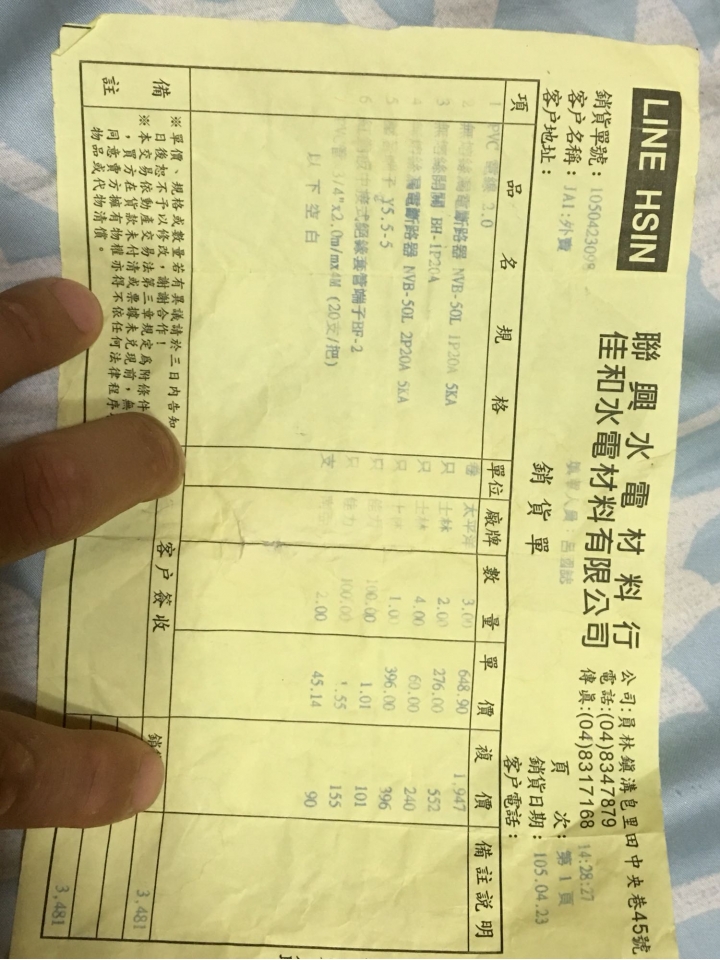 LINE HSIN
聯興水電材料行
佳和水電材料有限公司
公司:員林鎮溝皂里田中央巷45號
電話:(04)8347879
傳真:(04)8317168
14:28:27
銷貨單
銷貨單號：1050423098
頁 次：第 1 頁
客戶名稱：JA1:外賣
銷貨日期：105.04.23
客戶地址：
客戶電話：
項 品名規格 單位 廠牌 數量 單價 複價 備註說明
1 PVC 2.0 太平洋 3.00 648.90 1,947
2 漏電斷路器 NVB-50L 1P20A 5KA 只 士林 2.00 276.00 552
3 開關 BH-1P20A 只 士林 4.00 60.00 240
4 漏電斷路器 NVB-50L 2P20A 5KA 只 士林 1.00 396.00 396
5 Y5.5-5 只 100.00 1.01 101
6 式絕緣套管端子BF-2 只 100.00 1.55 155
3/4"x2.0m/mx4M (20支/把) 支 2.00 45.14 90
以下空白
備註
※單價、規格或數量若有異議請於三日內告知
日後恕不予以修改，謝謝合作！
※本交易依動產交易法第三章規定為附條件
，買方在貨款未付清或票據未兌現前，無
同意賣方擁有物權亦得不依任何法律程序
物品或代物清償。
客戶簽收
銷
3,481
3,481